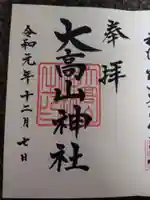 奉拝
大高山神社
令和元年十二月七日